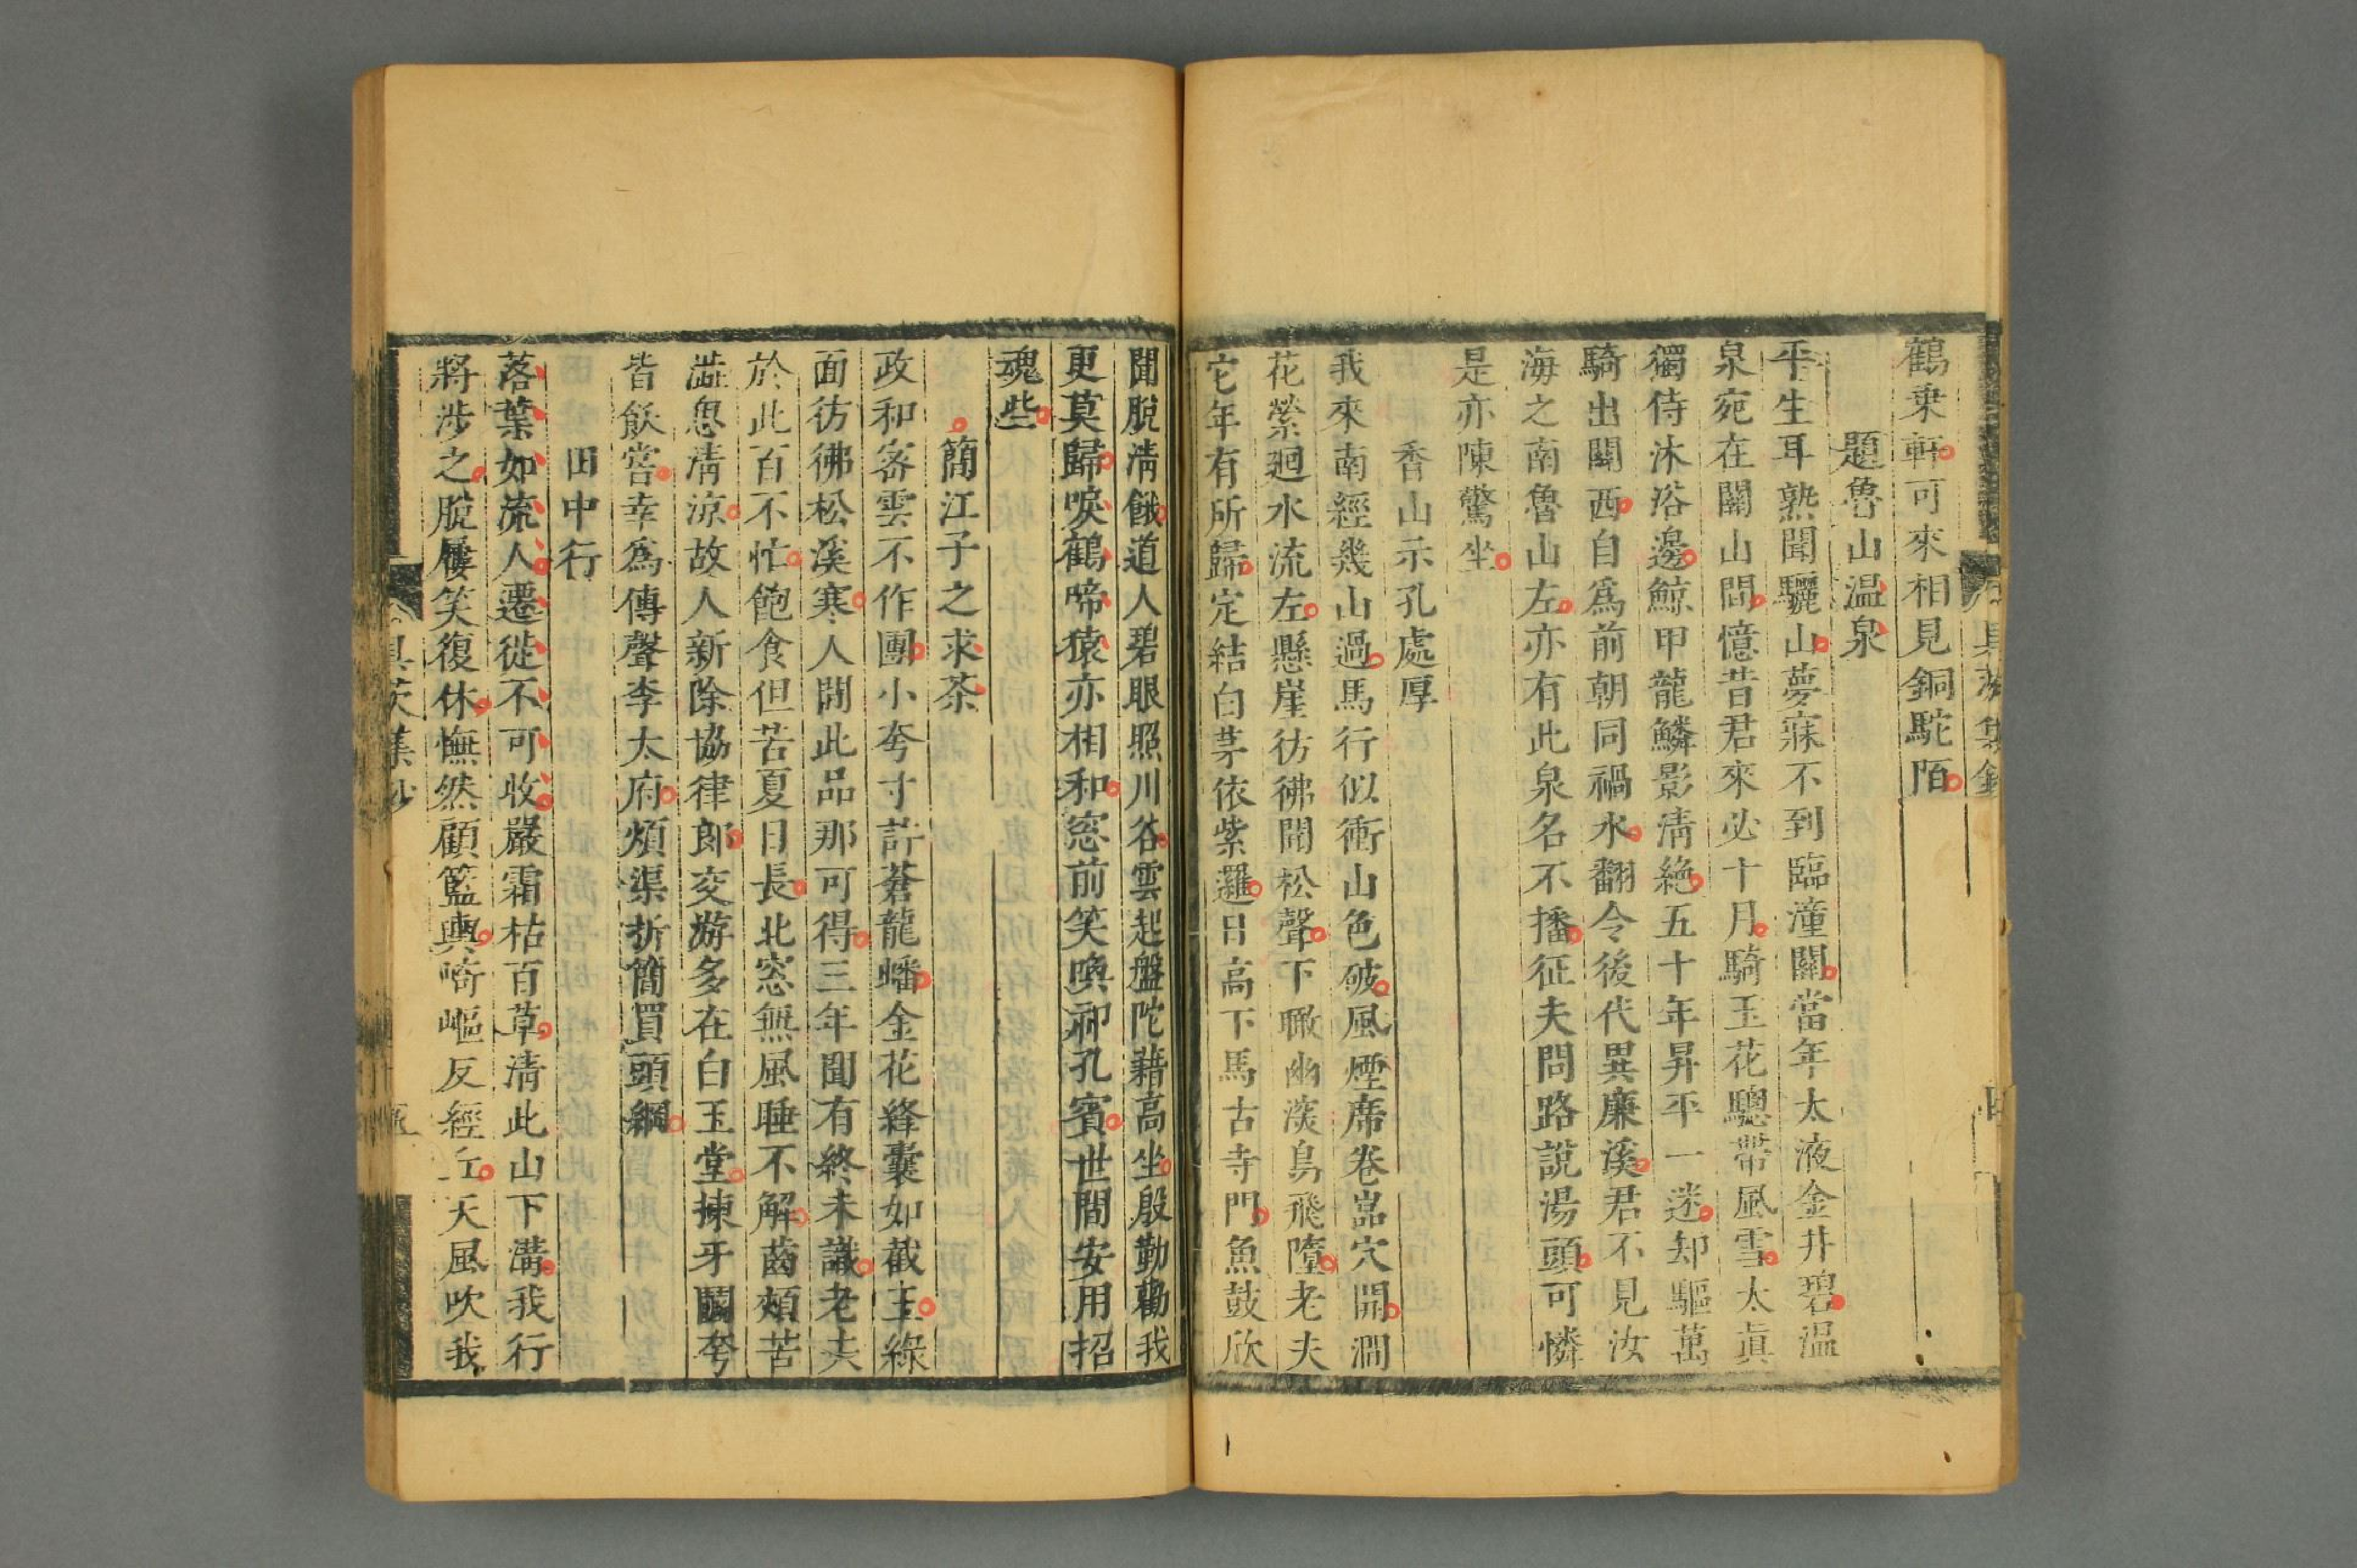 鶴乗軒可來相見銅駝陌
題魯山温泉
平生耳熟聞驪山夢寐不到臨潼關當年太液金井碧温
泉宛在關山間憶昔君來必十月騎玉花驄帶風雪太眞
獨侍沐浴邊鯨甲龍鱗影淸絶五十年昇平一迷却驅萬
騎出關西自爲前朝同禍水翻令後代異廉溪君不見汝
海之南魯山左亦有此泉名不播征夫問路說湯頭可憐
是亦陳驚坐
香山示孔處厚
我來南經幾山過馬行似衝山色破風煙席卷嵓穴開澗
花縈廻水流左懸崖彷彿聞松聲下瞰幽深鳥飛墮老夫
它年有所歸定結白茅依紫邏日高下馬古寺門魚鼓欣
聞脫淸餓道人碧眼照川谷雲起盤陀藉高坐殷勤勸我
更莫歸唳鶴啼猿亦相和窓前笑喚祁孔賓世間安用招
魂些
簡江子之求茶
政和密雲不作團小夸寸許蒼龍蟠金花絳囊如截玉綠
面彷彿松溪寒人間此品那可得三年聞有終未識老夫
於此百不忙飽食但苦夏日長北窓無風睡不解齒頰苦
澁思淸涼故人新除協律郎交游多在白玉堂揀牙鬬夸
皆飫嘗幸爲傳聲李太府煩渠折簡買頭綱
田中行
落葉如流人遷徙不可收嚴霜枯百草淸此山下溝我行
將涉之脫屨笑復休憮然顧籃輿崎嶇反經丘天風吹我
具茨集鈔